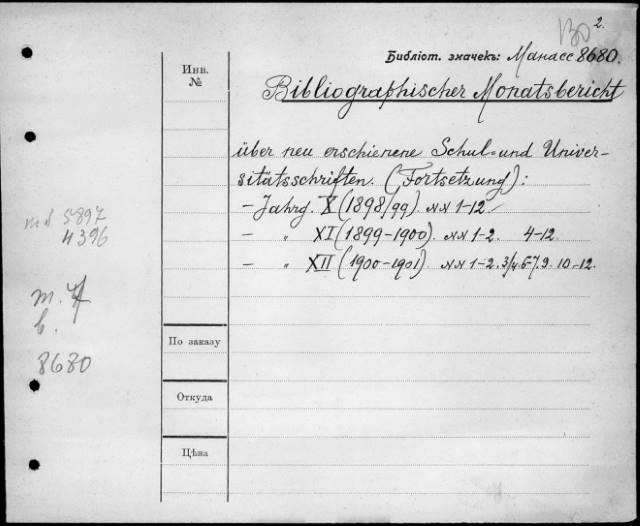 2.
130
Библіот. значекъ: Манасс 8680.
Инв.
№
Bibliographischer Monatsbericht
über neu erschienene Schul- und Univer-
sitätsschriften. (Fortsetzung):
- Jahrg. X (1898/99). NN 1-12.
- " XI (1899-1900). NN 1-2. 4-12.
- " XII (1900-1901). NN 1-2. 3/4. 5-7. 9. 10-12.
5897
4396
8680
По заказу
Откуда
Цѣна